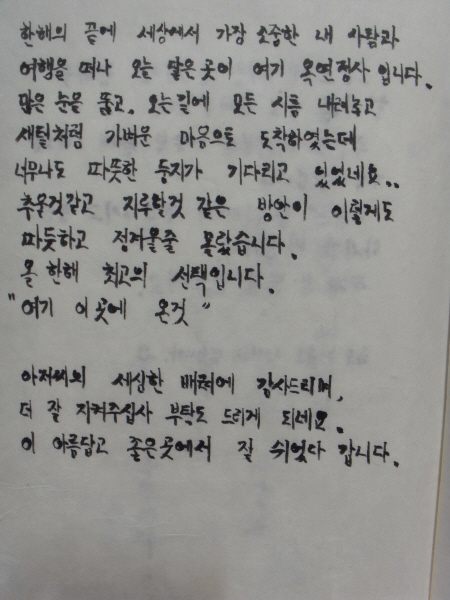 한해의 끝에 세상에서 가장 소중한 내 사람과
여행을 떠나 오늘 닿은 곳이 여기 옥연정사 입니다.
많은 눈을 뚫고. 오는길에 모든 시름 내려놓고
새털처럼 가벼운 마음으로 도착하였는데
너무나도 따뜻한 둥지가 기다리고 있었네요..
추울것같고 지루할것 같은 방안이 이렇게도
따듯하고 정겨울줄 몰랐습니다.
올 한해 최고의 선택입니다.
"여기 이곳에 온것"
아저씨의 세심한 배려에 감사드리며,
더 잘 지켜주십사 부탁도 드리게 되네요.
이 아름답고 좋은곳에서 잘 쉬었다 갑니다.